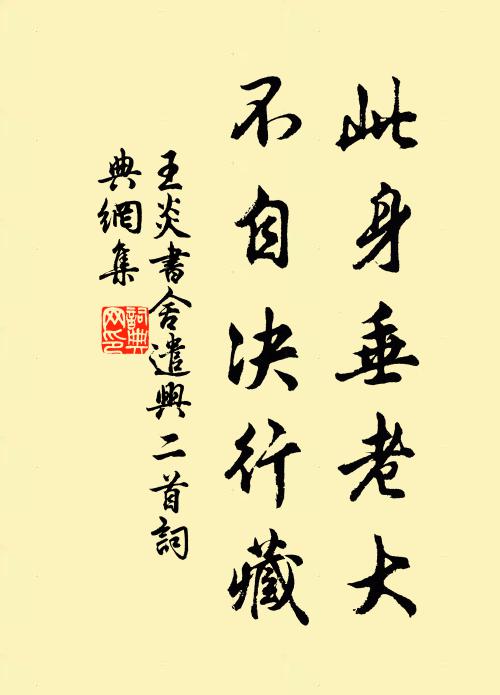 此身垂老大
不自决行藏
王炎書舍遣興二首詞
典網集
詞典
网印